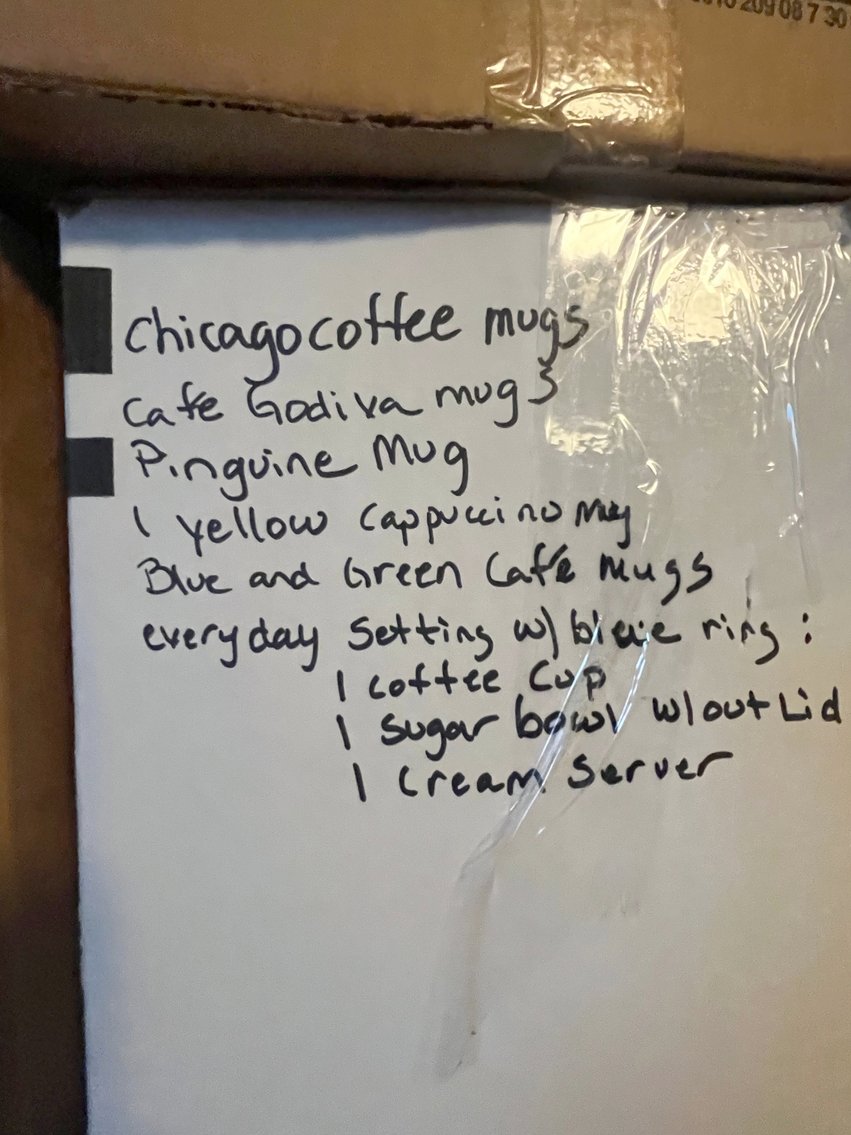 209 08 7 30
Chicago coffee mugs
Cafe Godiva mugs
Pinguine Mug
1 yellow Cappuccino Mug
Blue and Green Cafe Mugs
everyday Setting w/ blue ring:
1 coffee Cup
1 sugar bowl w/out Lid
1 Cream Server